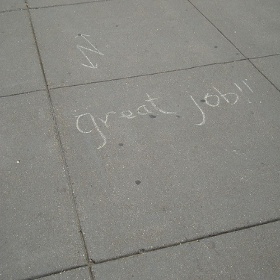 great job!!